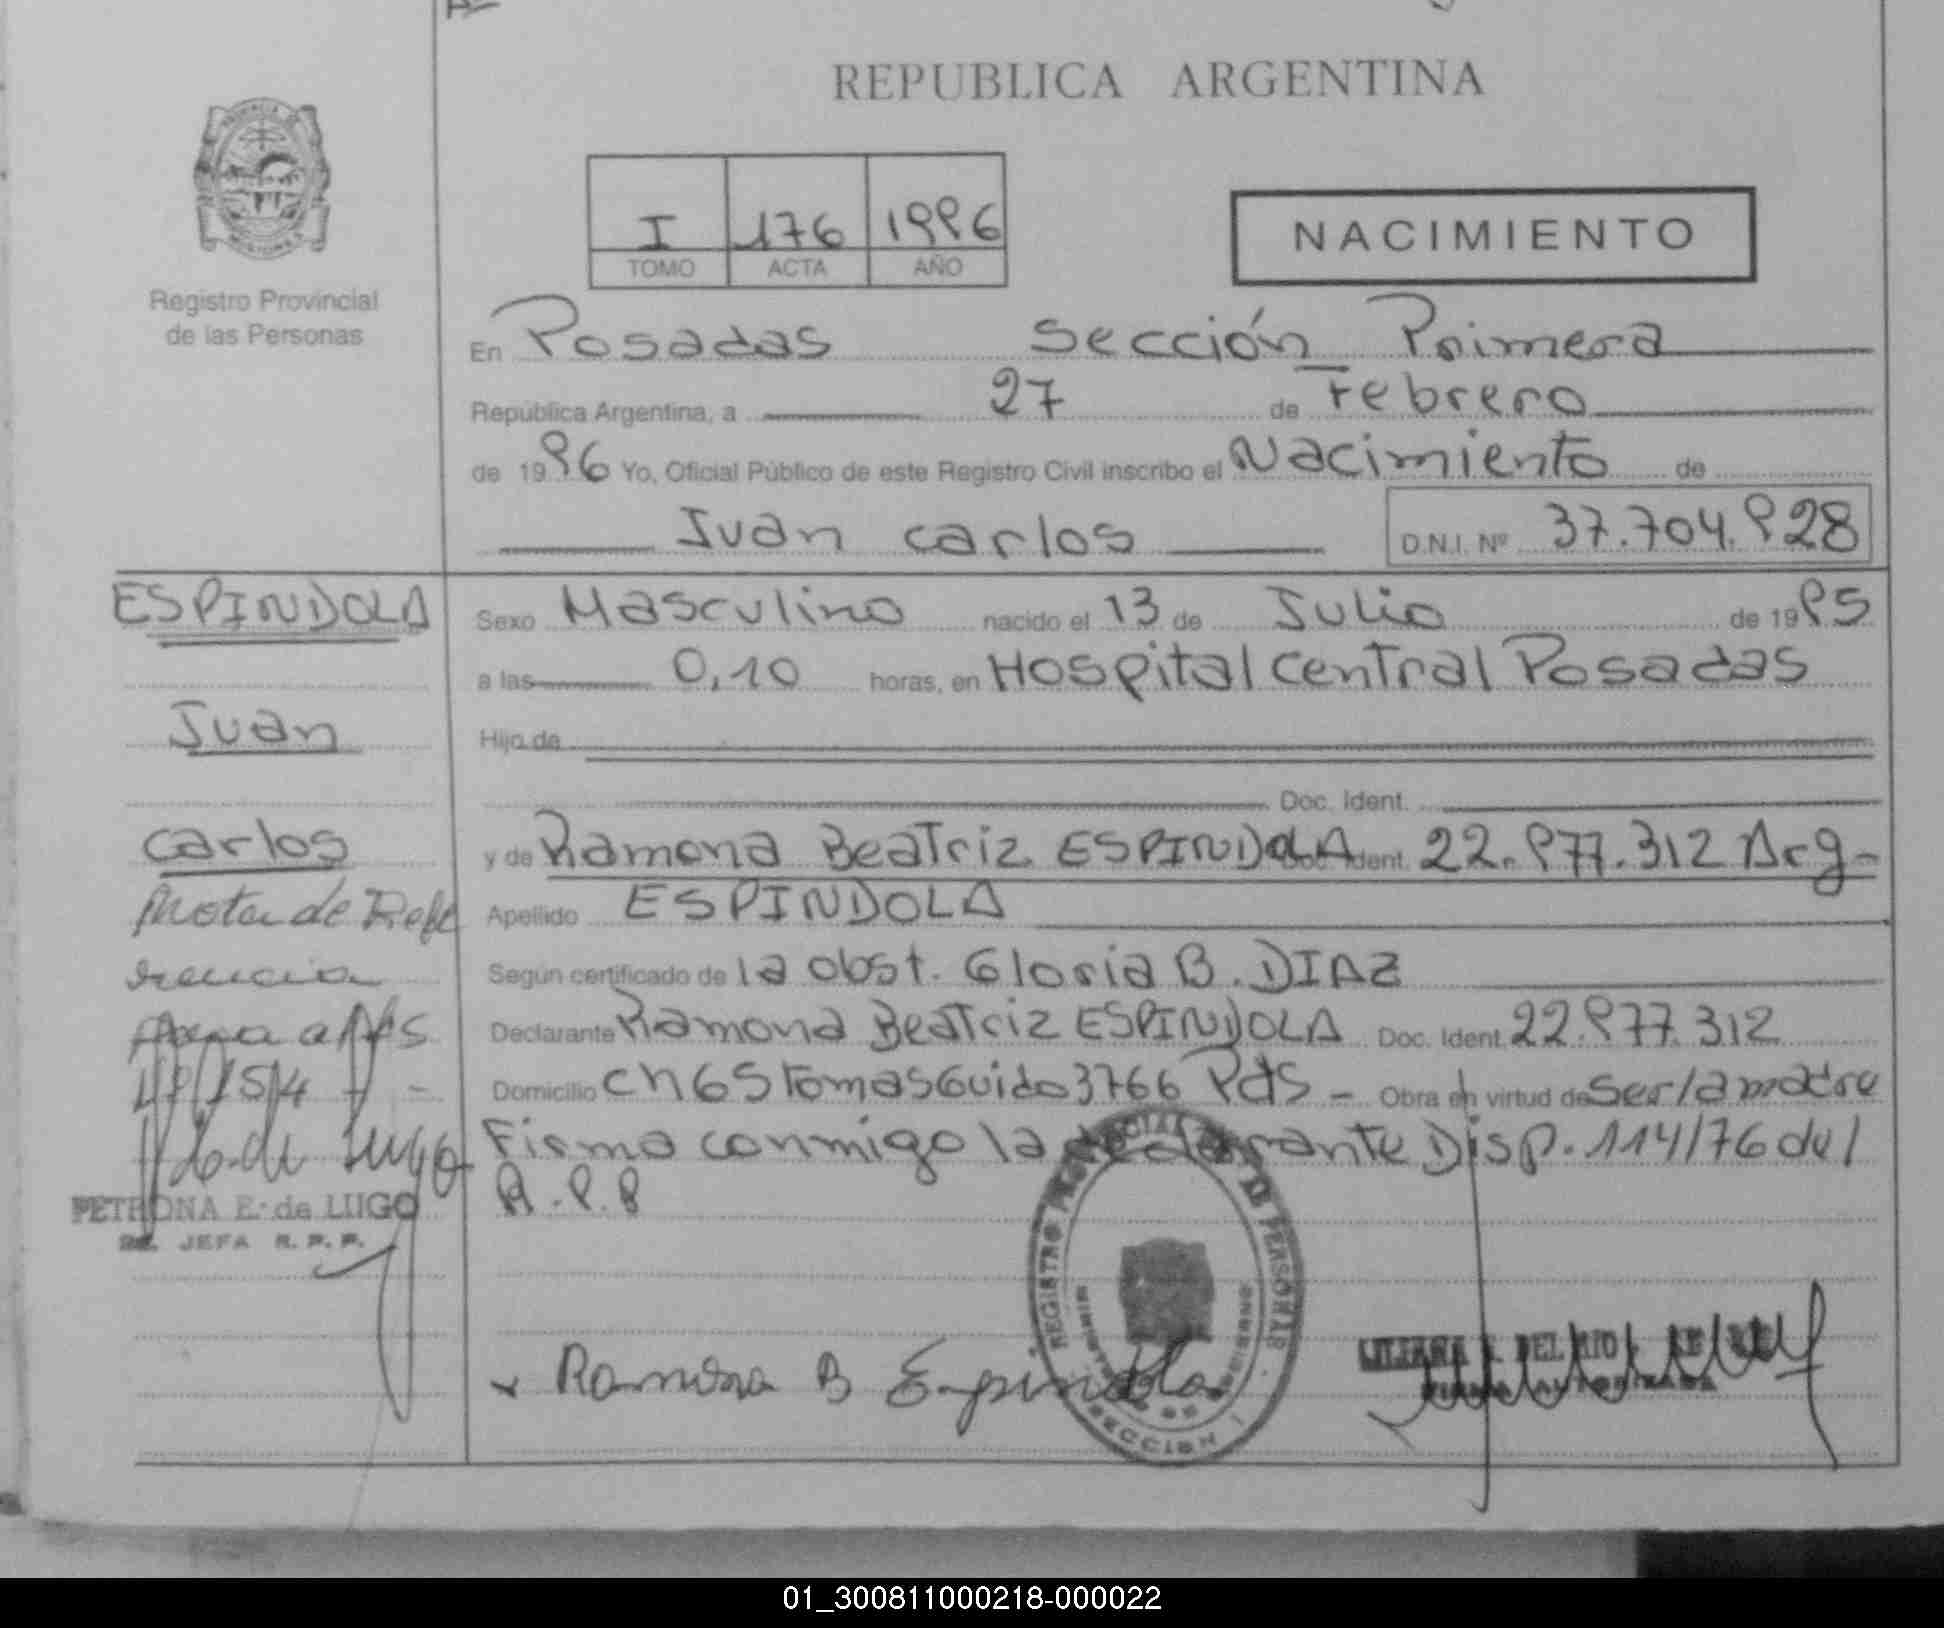 REPUBLICA ARGENTINA
I 176 1996
TOMO ACTA AÑO
NACIMIENTO
Registro Provincial
de las Personas
En Posadas Sección Primera
República Argentina, a 27 de Febrero
de 1996 Yo, Oficial Público de este Registro Civil inscribo el Nacimiento de
Juan Carlos D.N.I. Nº 37.704.928
ESPINDOLA
Juan
Carlos
Sexo Masculino nacido el 13 de Julio de 1995
a las 0,10 horas, en Hospital Central Posadas
Hijo de
Doc. Ident.
y de Ramona Beatriz ESPINDOLA Doc. Ident. 22.977.312 Arg-
Apellido ESPINDOLA
Según certificado de la obst. Gloria B. DIAZ
Declarante Ramona Beatriz ESPINDOLA Doc. Ident. 22.977.312
Domicilio Ch 65 Tomas Guido 3766 Pdas - Obra en virtud de Ser la madre
Firma conmigo la declarante Disp. 114/76 del
R.P.P
Nota de Refe
rencia
PETRONA E. de LUGO
JEFA R. P. P.
REGISTRO PROVINCIAL DE LAS PERSONAS
SECCION 1
Ramona B Espindola